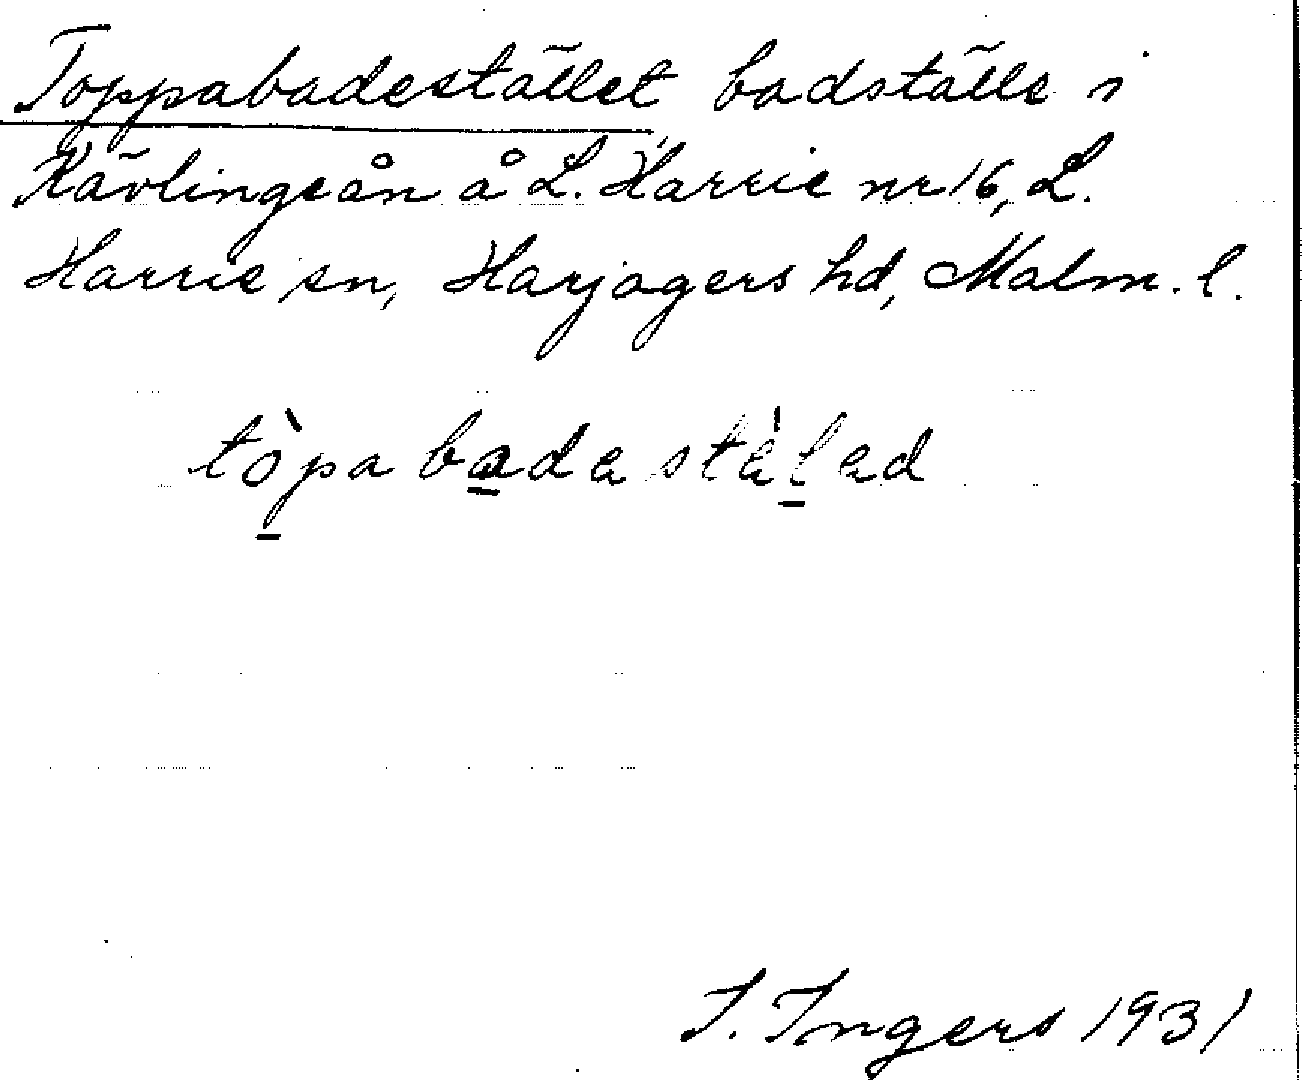 Toppabadestället badställe i
Kävlingeån å L. Harrie nr 16, L.
Harrie sn, Harjagers hd, Malm. l.
tòpabadastàlad
I. Ingers 1931